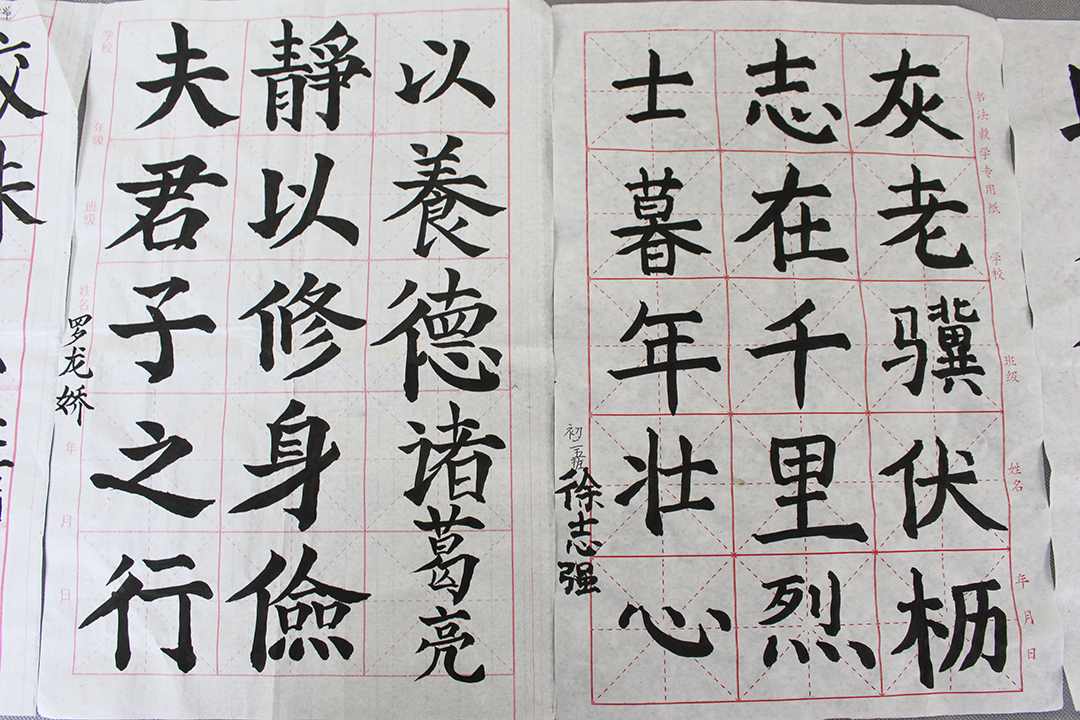 学校 年级 班级 姓名 年 月 日
罗龙娇
夫君子之行
靜以修身儉
以養德诸葛亮
书法教学专用纸 学校 班级 姓名 年 月 日
灰老骥伏枥
志在千里烈
士暮年壮心
徐志强